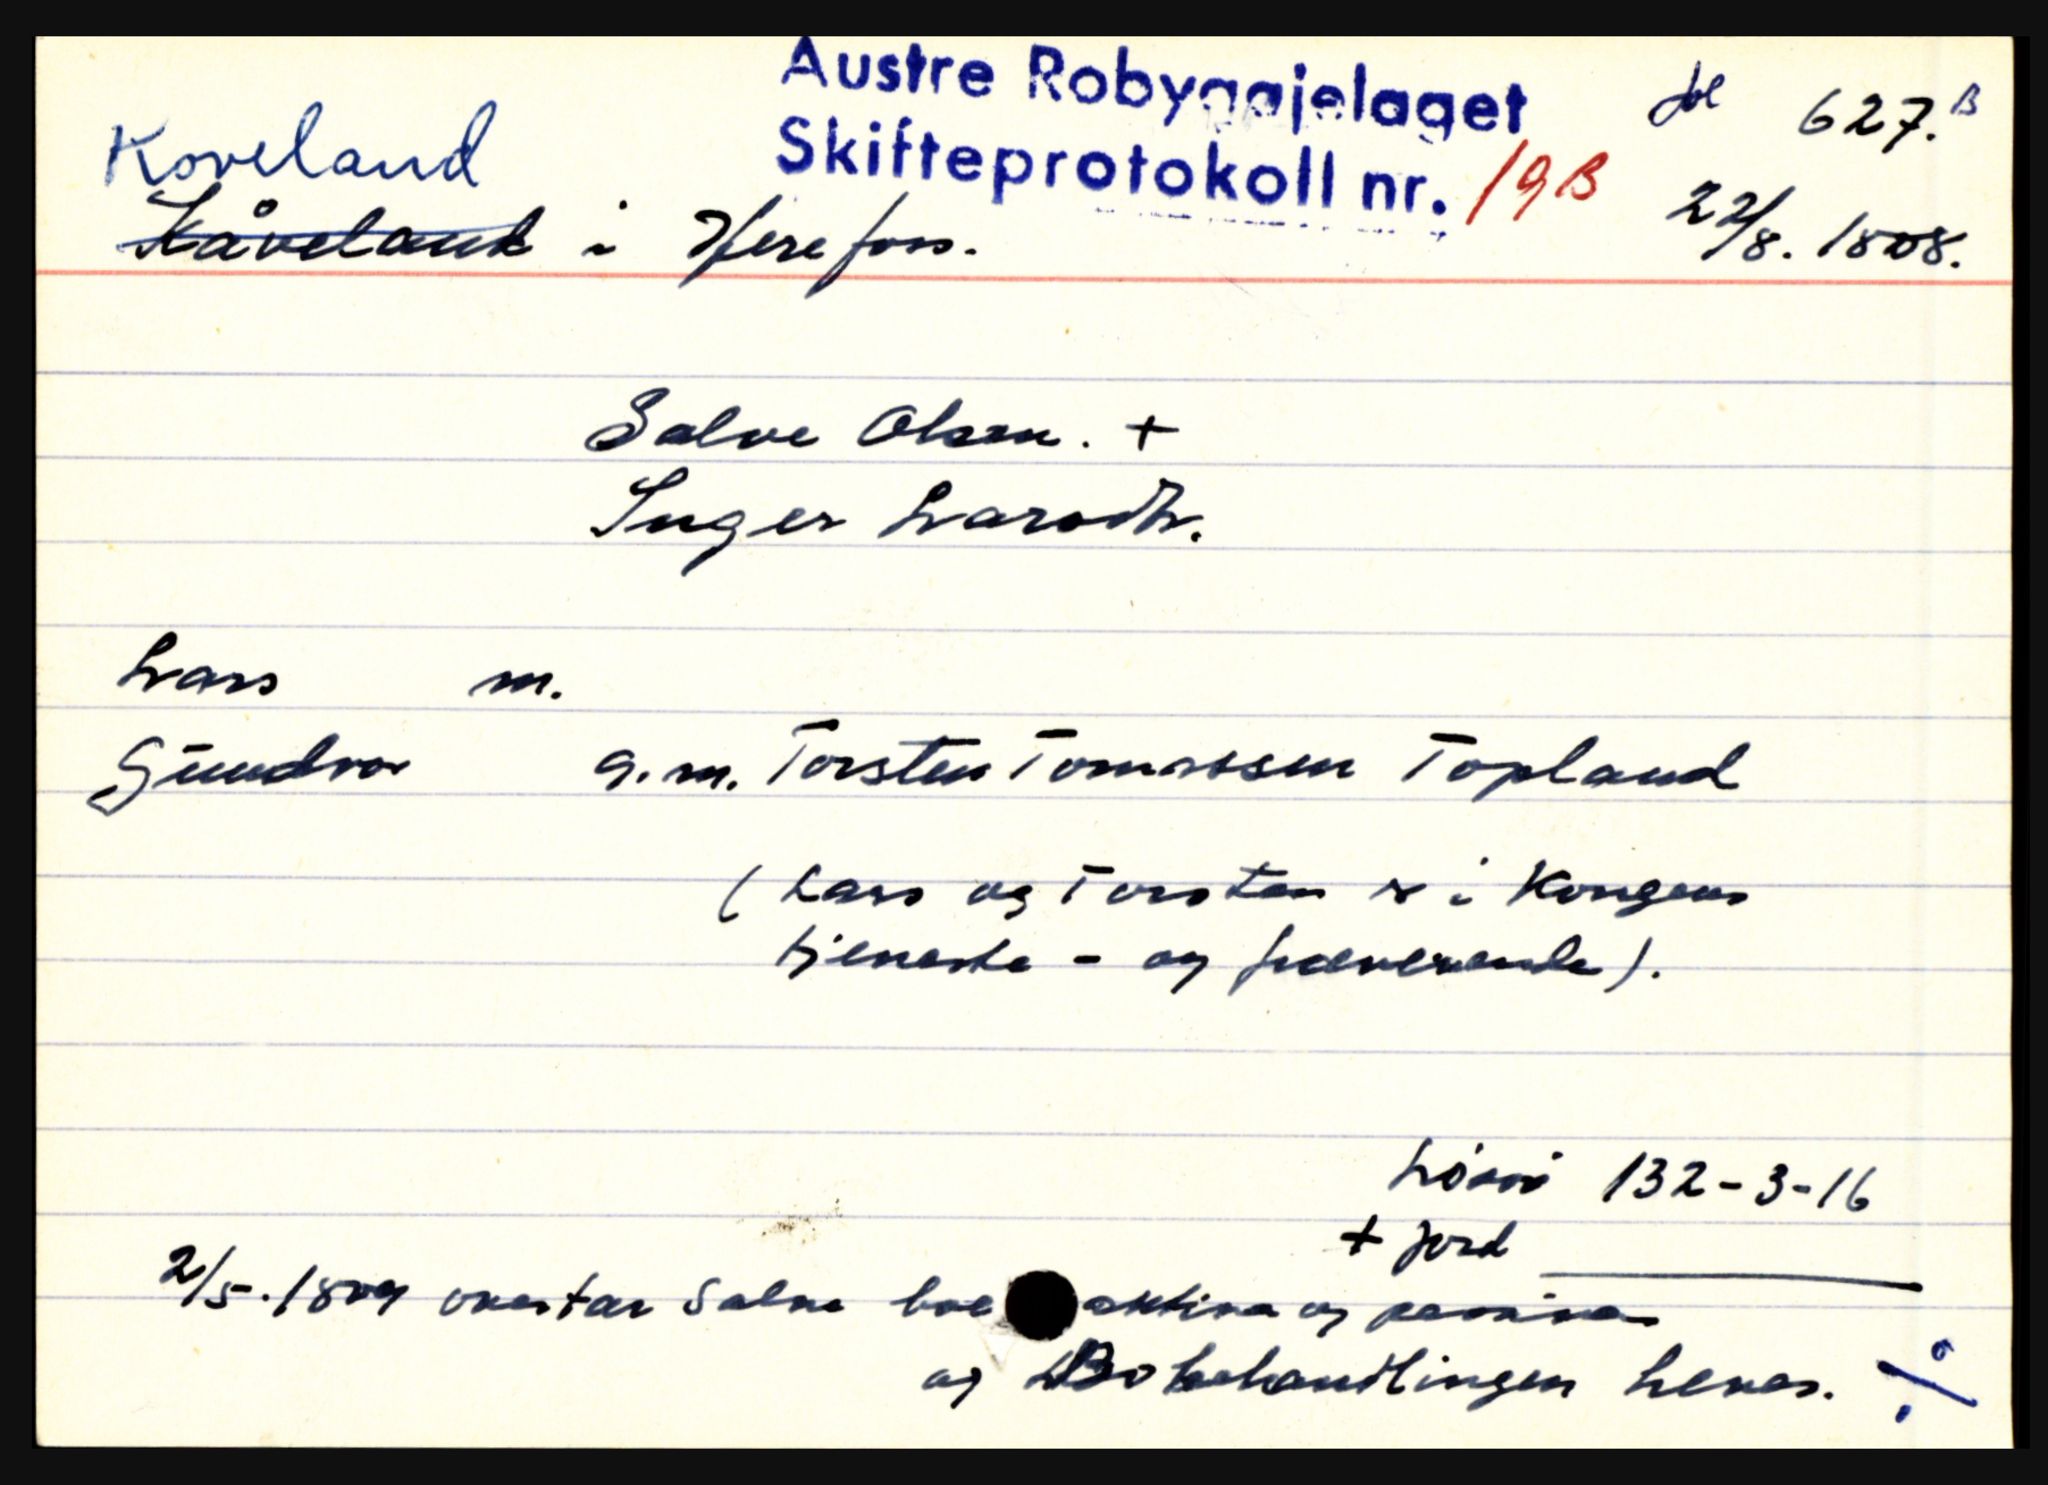 Austre Robyggjelaget
Skifteprotokoll nr. 19B
fol 627.B
22/8. 1808.
Koveland
Kåveland i Herefoss.
Salve Olsen. +
Inger Larsdtr.
Lars m.
Gundvor g.m. Torsten Tomassen Topland
( Lars og Torsten er i Kongens
tjeneste - og fraværende ).
Løsøre 132-3-16
+ jord
2/5. 1809 overtar Salve boets aktiva og passiva
og Bobehandlingen heves.